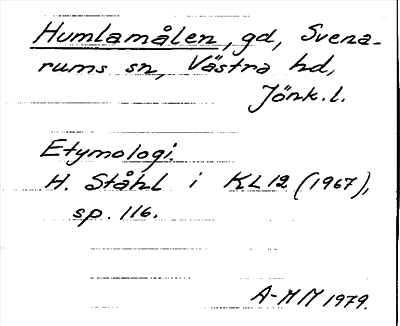 Humlamålen, gd, Svena-
rums sn, Västra hd,
Jönk. l.
Etymologi.
H. Ståhl i KL 12 (1967),
sp. 116.
A-MM 1979.